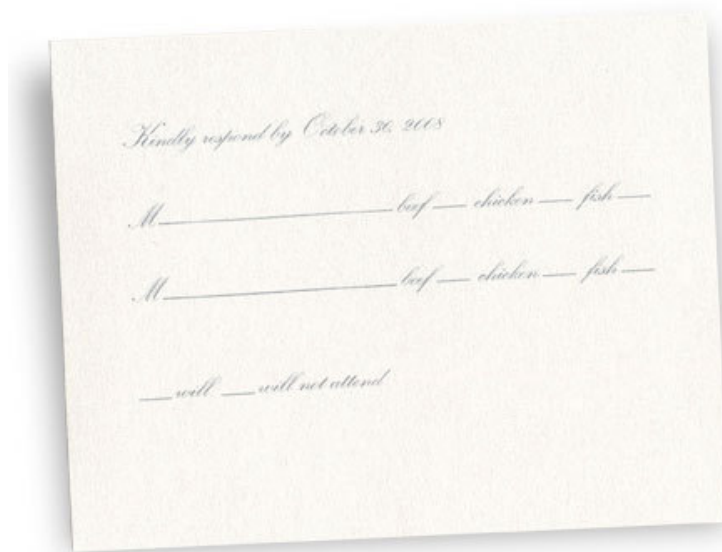 Kindly respond by October 30, 2008
M____________________ beef ___ chicken ___ fish ___
M____________________ beef ___ chicken ___ fish ___
___ will ___ will not attend